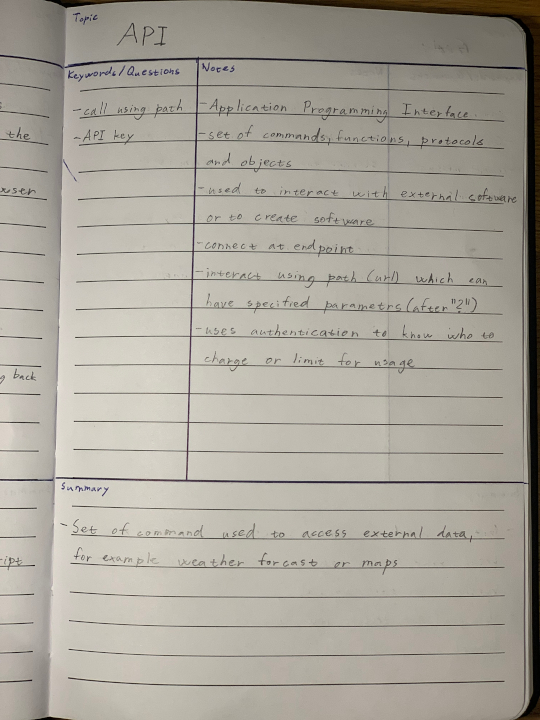 Topic
API
Keywords/Questions
Notes
-call using path
-API key
-Application Programming Interface
-set of commands, functions, protocols
and objects
-used to interact with external software
or to create software
-connect at endpoint
-interact using path (url) which can
have specified parametrs (after "?")
-uses authentication to know who to
charge or limit for usage
Summary
-Set of command used to access external data,
for example weather forcast or maps
the
back